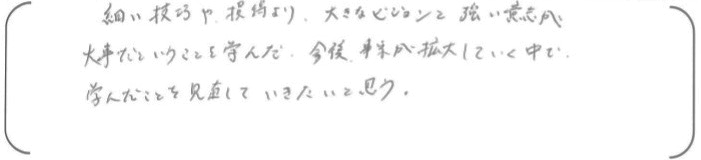 細い技巧や損得より、大きなビジョンと強い意志が
大事だということを学んだ。今後、事業が拡大していく中で、
学んだことを見直していきたいと思う。